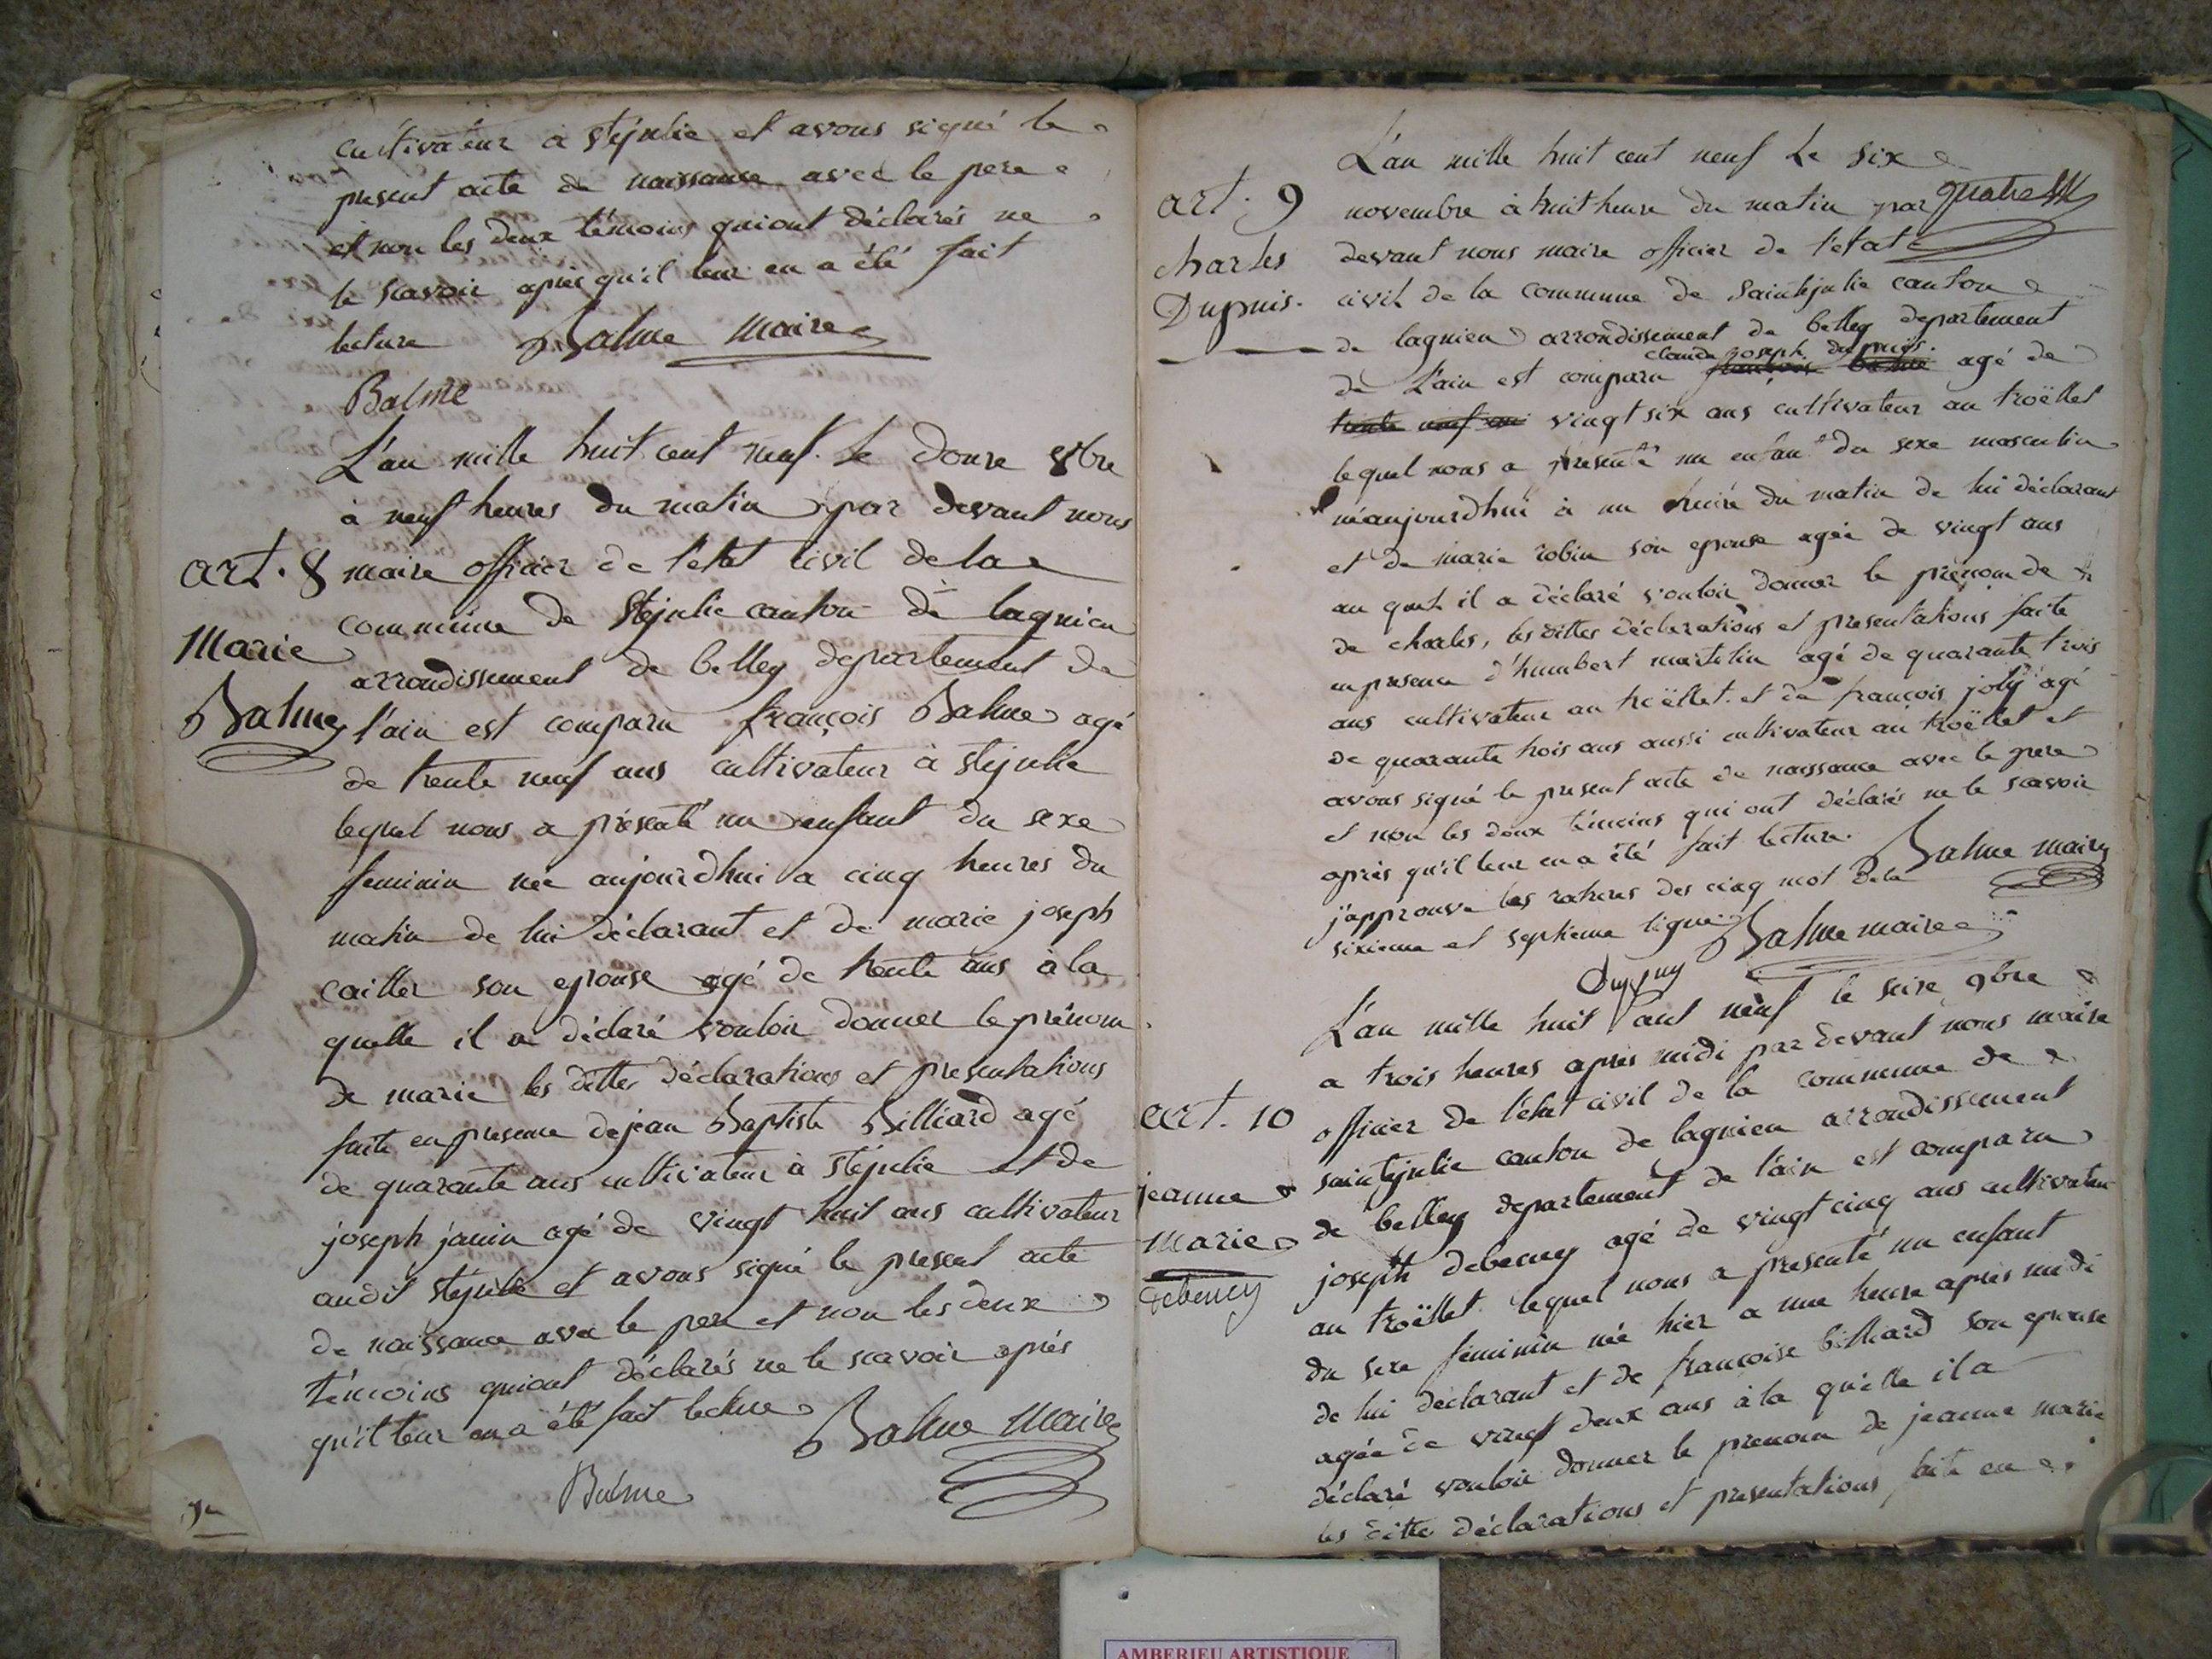 cultivateur à stejulie et avons signé le
present acte de naissance avec le pere
et non les deux témoins qui ont déclarés ne
le scavoir apres qu'il leur en a été fait
lecture Balme maire
Balme
L'an mille huit cent neuf. le douze 8bre
à neuf heures du matin par devant nous
art. 8 maire officier de l'etat civil de la
commune de stejulie canton de lagnieu
Marie
arrondissement de belley departement de
Balme l'ain est comparu françois Balme agé
de trente neuf ans cultivateur à stejulie
lequel nous a présenté un enfant du sexe
feminin née aujourdhui a cinq heures du
matin de lui déclarant et de marie joseph
cailler son epouse agé de trente ans à la
quelle il a déclaré vouloir donner le prénom
de marie les dittes déclarations et presentations
faite en presence de jean Baptiste Billiard agé
de quarante ans cultivateur à stejulie et de
joseph janin agé de vingt huit ans cultivateur
audit stejulie et avons signé le present acte
de naissance avec le pere et non les deux
témoins qui ont déclarés ne le scavoir après
qu'il leur en a été fait lecture Balme Maire
Balme
L'an mille huit cent neuf le six
art. 9 novembre à huit heure du matin par quatre
charles devant nous maire officier de l'état
Dupuis. civil de la commune de saintejulie canton
de lagnieu arrondissement de belley departement
claude joseph dupuis.
de l'ain est comparu françois balme agé de
trente neuf vingt six ans cultivateur au troëllet
lequel nous a presenté un enfant du sexe masculin
né aujourdhui à un heure du matin de lui déclarant
et de marie robin son epouse agée de vingt ans
au quel il a déclaré vouloir donner le prenom de
de charles, les dittes déclarations et presentations faite
en presence d'humbert martelin agé de quarante trois
ans cultivateur au troëllet. et de françois joly agé
de quarante trois ans aussi cultivateur au troëllet et
avons signé le present acte de naissance avec le pere
et non les deux témoins qui ont déclarés ne le scavoir
après qu'il leur en a été fait lecture. Balme maire
j'approuve les ratures des cinq mot de la
sixieme et septieme ligne Balme maire
Dupuy
L'an mille huit cent neuf le seize 9bre
a trois heures après midi par devant nous maire
art. 10 officier de l'état civil de la commune de
saintejulie canton de lagnieu arrondissement
jeanne de belley departement de l'ain est comparu
Marie joseph debeney agé de vingt cinq ans cultivateur
debeney au troëllet lequel nous a presenté un enfant
du sexe féminin née hier a une heure après midi
de lui déclarant et de françoise billiard son epouse
agée de vingt deux ans à la quelle il a
déclaré vouloir donner le prenom de jeanne marie
les ditte déclarations et presentations faite en
AMBERIEU ARTISTIQUE